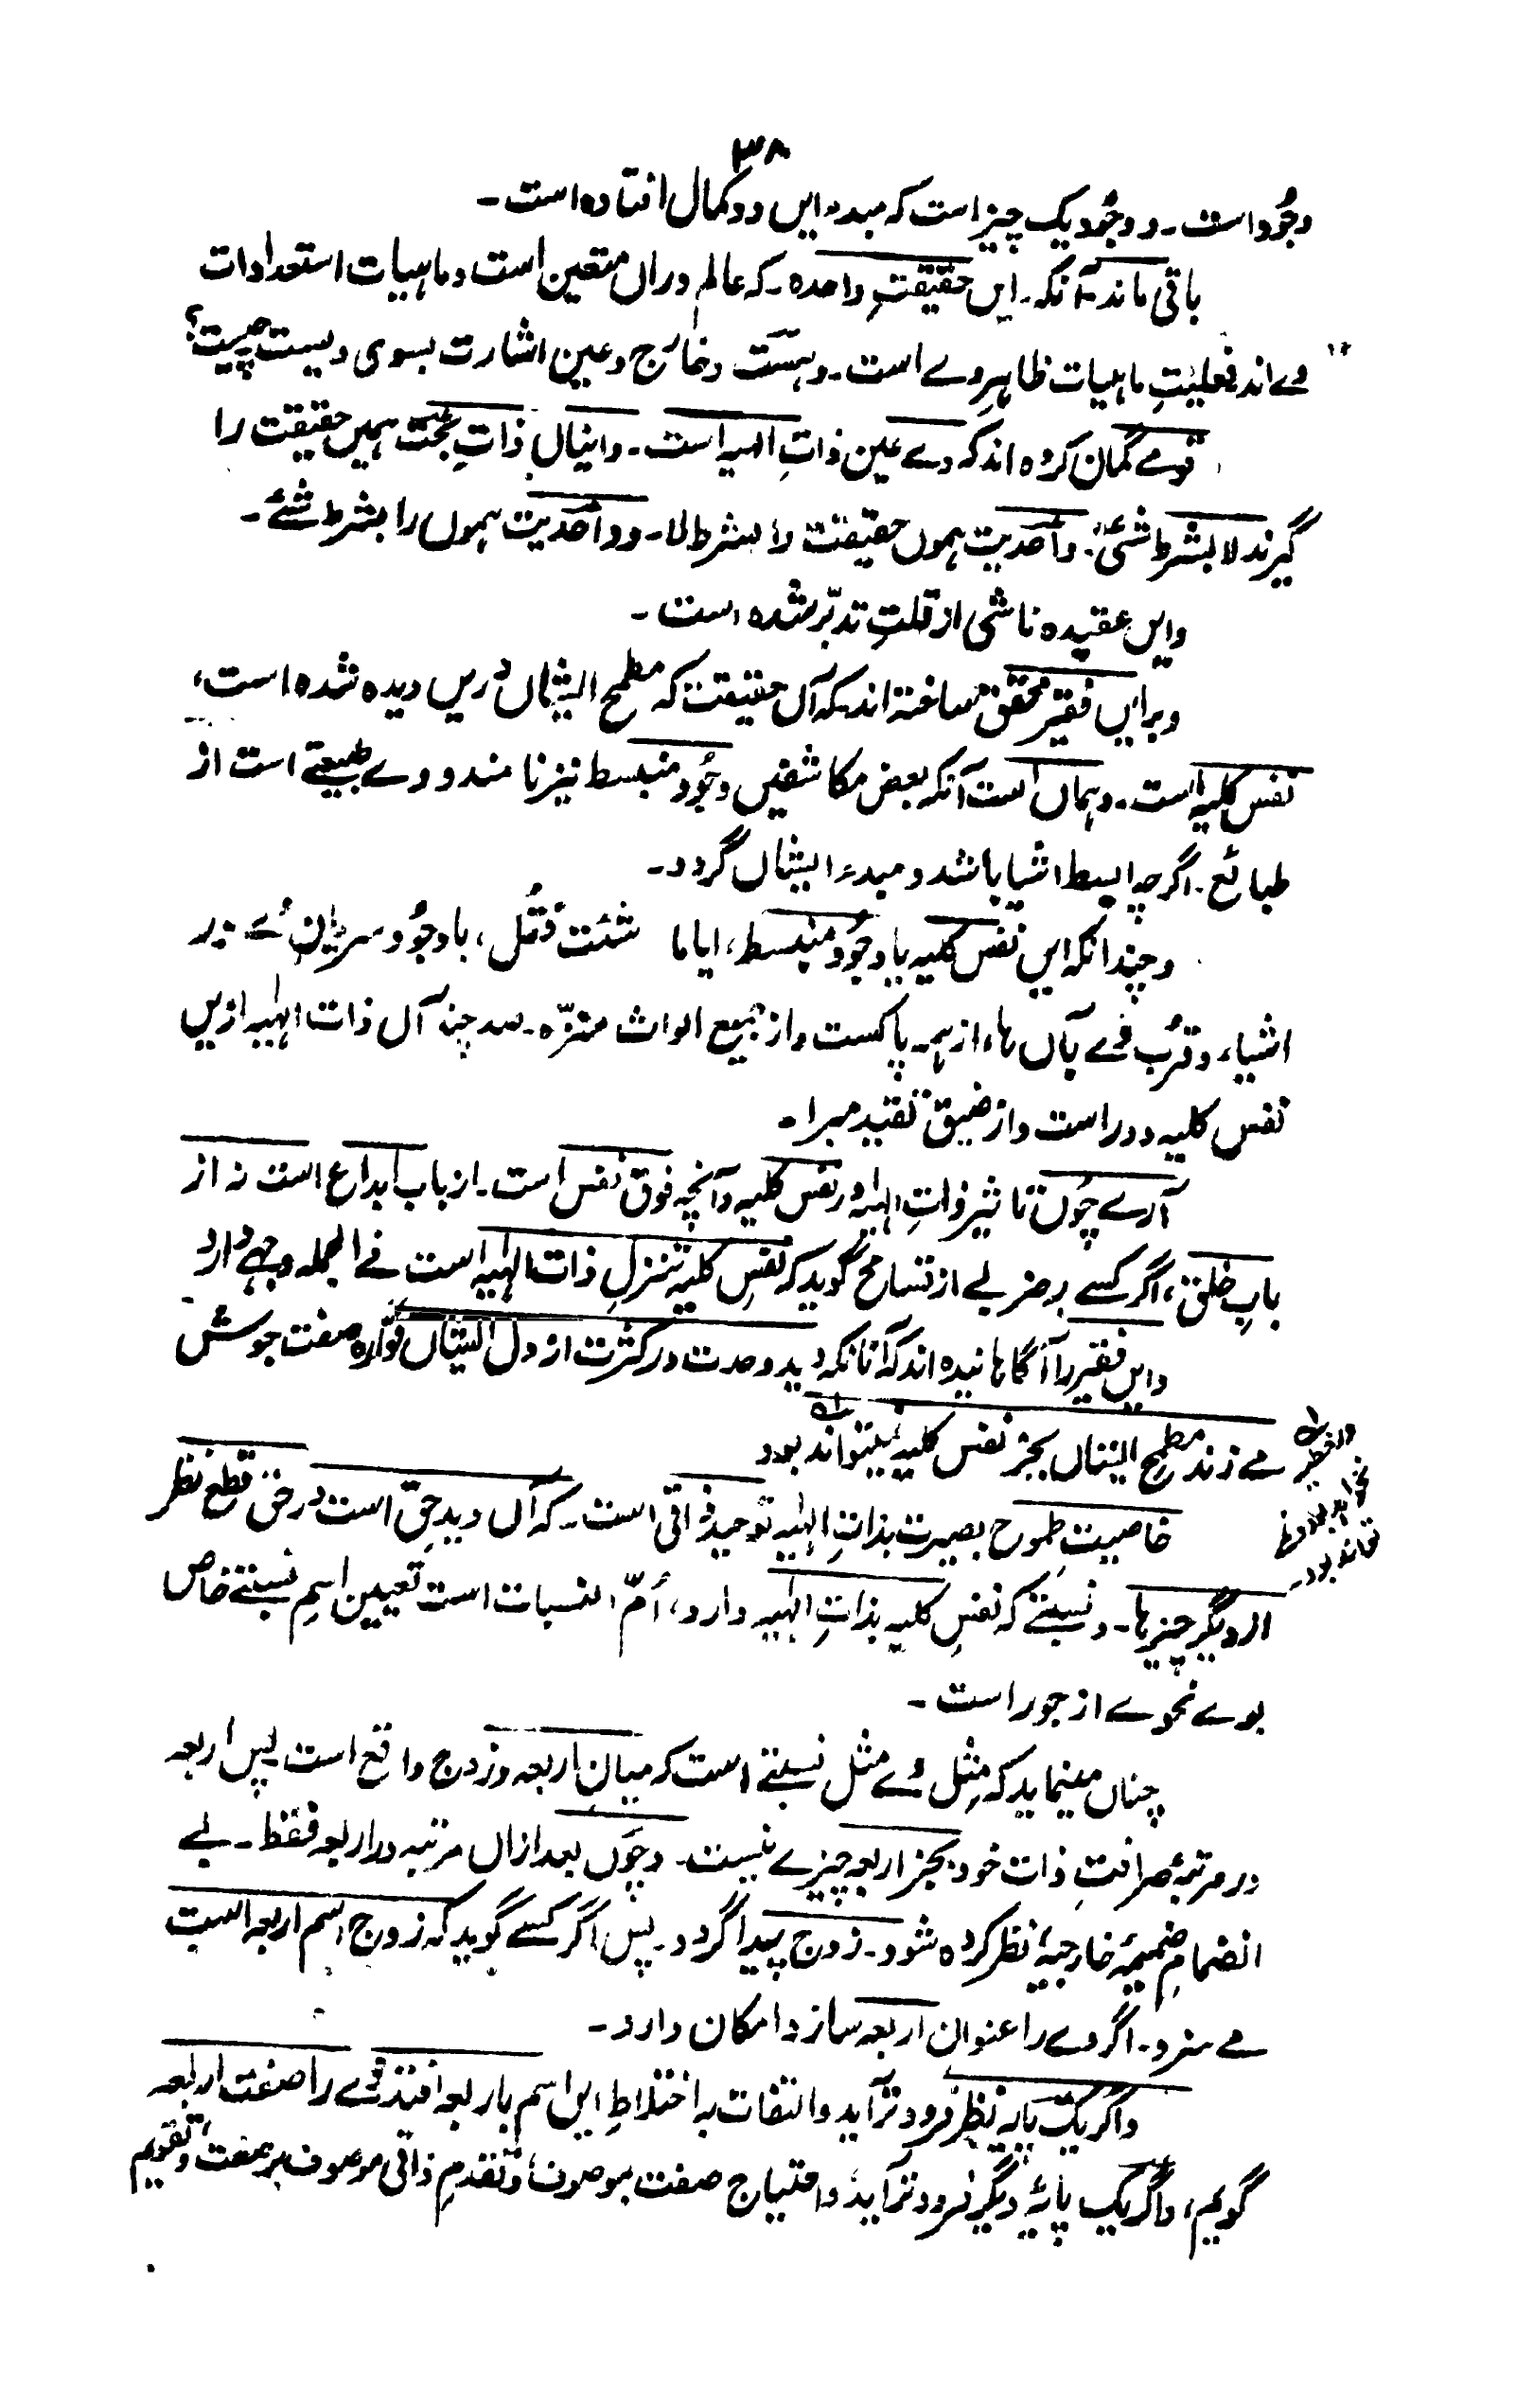 ۳۸
وجُود است ۔ و وجُود یک چیز است که مبدء ایں دو کمال افتاده است ۔
باقی ماند آنکه ۔ ایں حقیقتِ واحده ۔ که عالم دراں متعین است و ماہیات استعدادات
وے اند فعلیتِ ماہیات ظاہرِ وے است ۔ و ہست و خارج و عین اشارت بسوی ویست چیست؟
قومے گمان کرده اند که وے عین ذاتِ الہیہ است ۔ و اینال ذاتِ بحت ہمیں حقیقت را
گیرند لا بشرط شیٔ ۔ و احدیت ہموں حقیقت را بشرط لا ۔ و واحدیت ہموں را بشرط شئے ۔
و ایں عقیده ناشی از قلتِ تدبّر شده است ۔
و بر ایں فقیر محقق ساخته اند که آں حقیقت که مطمح ایشاں دریں دیده شده است،
نفس کلیہ است ۔ و ہماں است آنکه بعض مکاشفین وجُود منبسط نیز نامند و وے طبیعتے است از
طبائع ۔ اگرچہ ابسط اشیا باشد و مبدء ایشاں گردد ۔
و چندانکه ایں نفس کلیہ یا وجُود منبسط، ایاما شئت فقُل، باوجُود سریانِ وے در
اشیاء و قُرب وے بآں ہا، از ہمہ پاکست و از جمیع الواث منزّه ۔ صد چند آں ذات الٰہیہ ازیں
نفس کلیہ دور است و از ضیق تقید مبرا ۔
آرے چُوں تاثیر ذاتِ الٰہیہ در نفس کلیہ و آنچہ فوق نفس است ۔ از باب ابداع است نہ از
بابِ خلق، اگر کسے بر ضربے از تسامح گوید که نفسِ کلیہ تنزلِ ذات الٰہیہ است فے الجملہ وجہے دارد
و ایں فقیر را آگاہانیده اند که آنانکه دید وحدت در کثرت از دل ایشاں فوّاره صفت جوش
مے زند مطمح ایشاں بجز نفس کلیہ نمیتواند بود
خاصیتِ طموح بصیرت بذاتِ الٰہیہ توحید ذاتی است ۔ که آں دید حق است در حق قطع نظر
از دیگر چیزہا ۔ و نسبتے که نفسِ کلیہ بذاتِ الٰہیہ دارد، اُمّ النسبات است تعیین اسمِ نسبتے خاص
بوے نحوے از جور است ۔
چناں مینماید که مثل وے مثل نسبتے است که میان اربعہ و زوج واقع است پس اربعہ
در مرتبۂ صرافتِ ذات خود بجز اربعہ چیزے نیست ۔ و چوں بعد ازاں مرتبہ در اربعہ فقط ۔ بے
انضمامِ ضمیمۂ خارجیہ نظر کرده شود ۔ زوج پیدا گردد ۔ پس اگر کسے گوید که زوج اسم اربعہ است
مے سزد ۔ اگر وے را عنوان اربعہ سازد امکان دارد ۔
و اگر یک پایہ نظر فرود تر آید و التفات به اختلاطِ ایں اسم باربعہ افتد وے را صفت اربعہ
گویم، و اگر یک پایۂ دیگر فرود تر آید و احتیاج صفت بموصوف و تقدمِ ذاتی موصوف بر صفت و تقویم